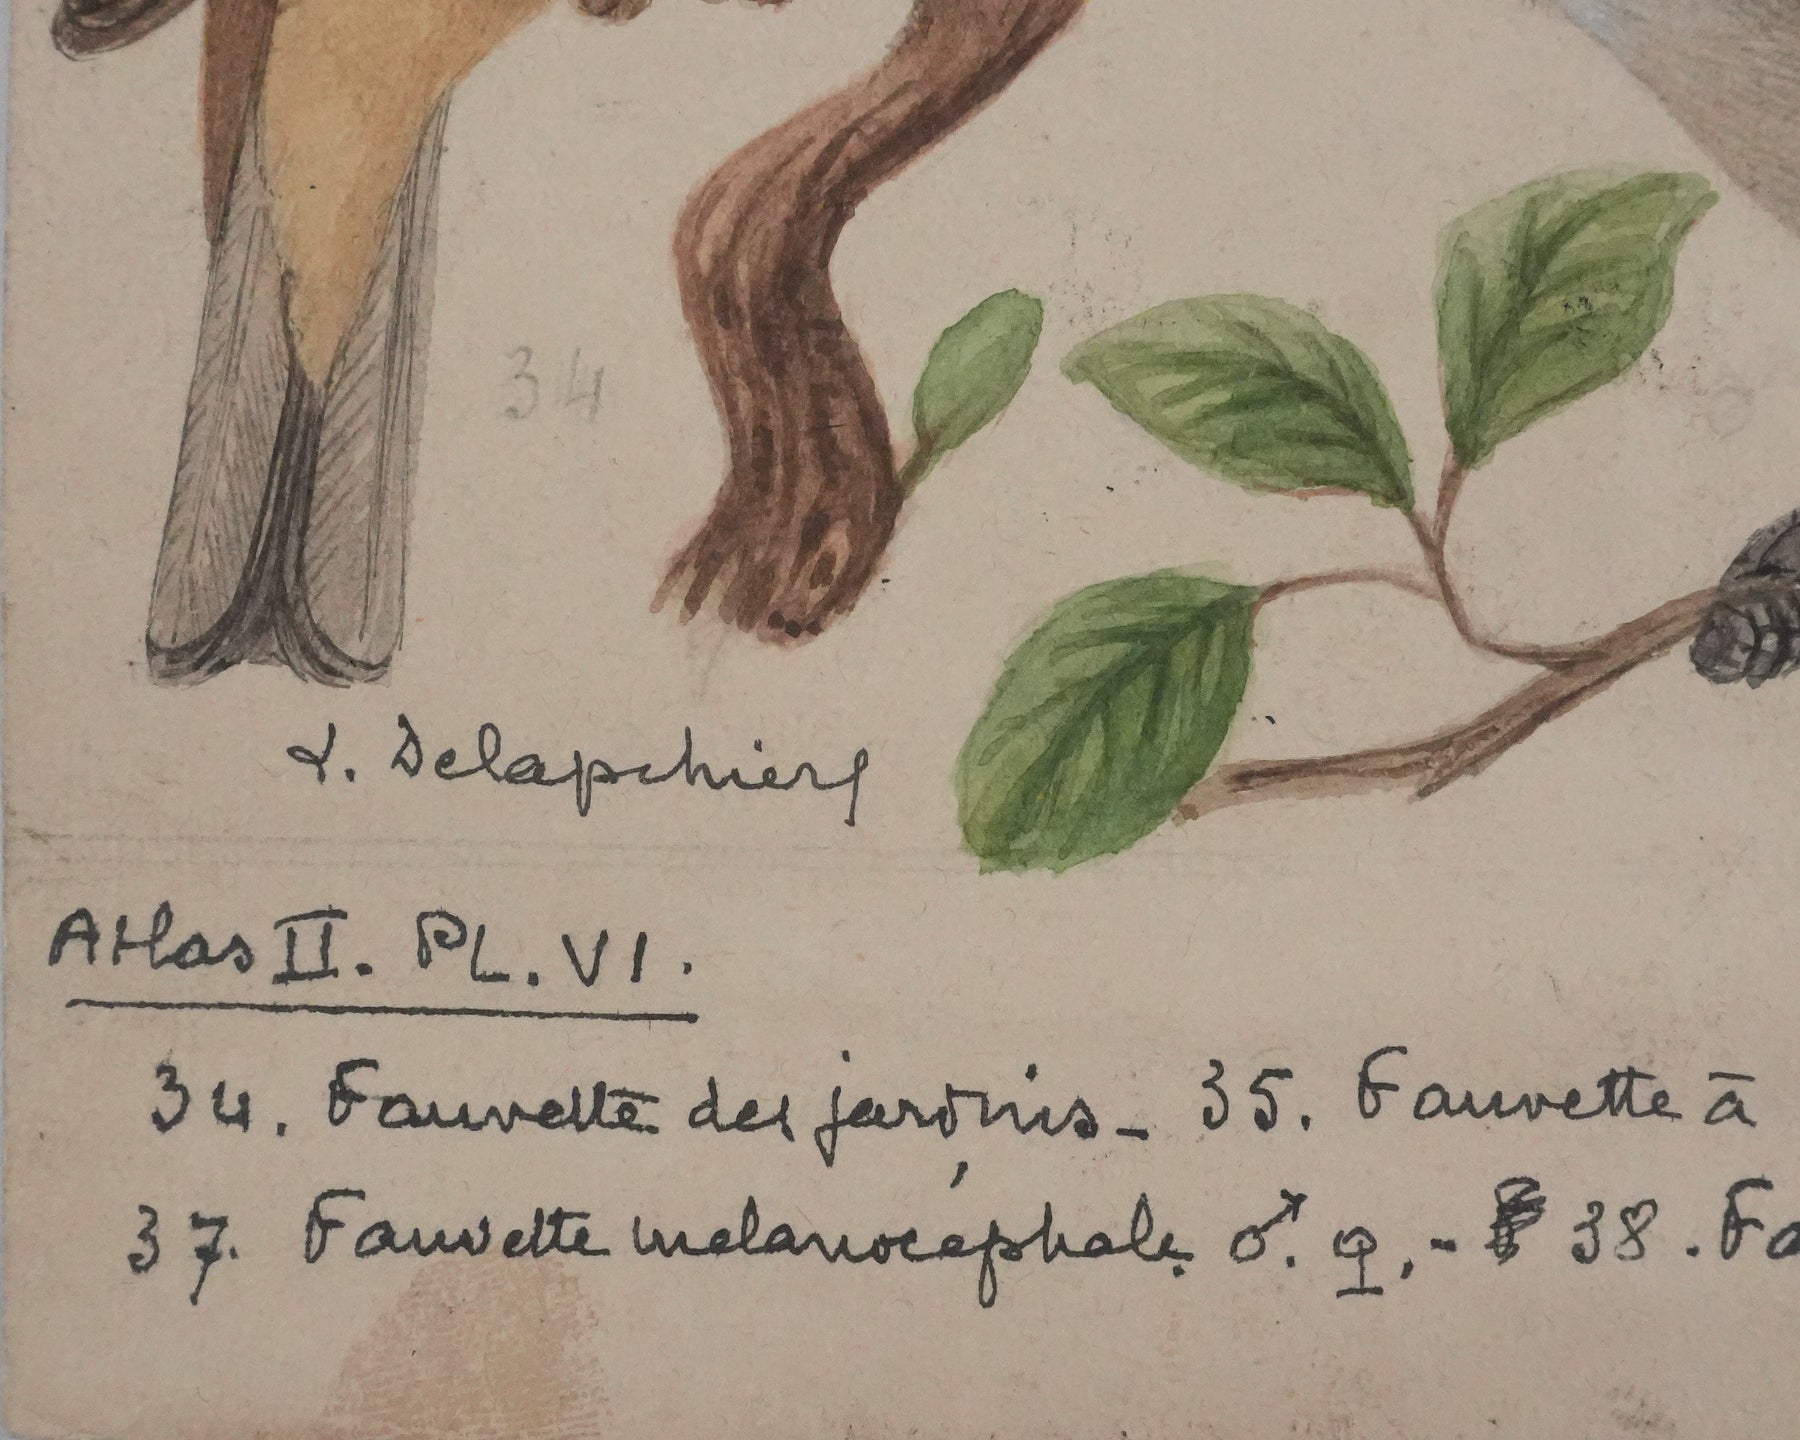 34
L. Delapchier
Atlas II. PL. VI.
34. Fauvette des jardins - 35. Fauvette à
37. Fauvette mélanocéphale. ♂. ♀. - 38. Fa